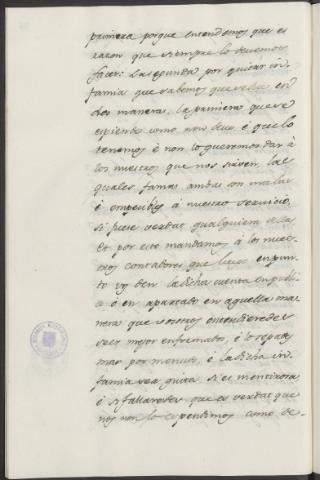 primera porque entendemos que es
razon que siempre lo devemos
facer: La segunda por quitar in-
famia que sabemos que selva en
dos maneras, la primera que se
espiende como non deve, é que lo
tenemos é non lo queremos dar á
los nuestros que nos sirven, las
quales famas ambas son malas
é empecibles á nuestro servicio,
si fuese verdat qualquiera dellas
Et por esto mandamos á los nues-
tros contadores que luego en pun-
to vos den la dicha cuenta en publi-
co é en apartado en aquella ma-
nera que vosotros entendieredes
seer mejor enformados, é lo repata
mas por menudo, é la dicha in-
famia ser quita si es mentirosa
é si fallaredes que es verdat que
nos non lo espendimos como de-